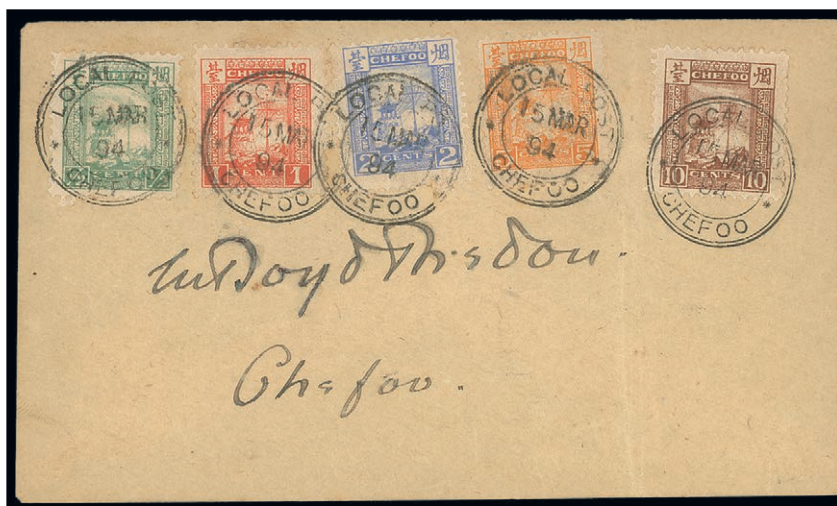 CHEFOO 烟
½
LOCAL POST
15 MAR
94
CHEFOO
臺 CHEFOO 烟
1 CENT 1
LOCAL
15 MAR
94
CHEFOO
臺 CHEFOO 烟
2 CENTS 2
LOCAL
15 MAR
94
CHEFOO
臺 CHEFOO 烟
5
LOCAL POST
15 MAR
94
CHEFOO
臺 CHEFOO 烟
10 CENTS 10
LOCAL POST
15 MAR
94
CHEFOO
Chefoo.